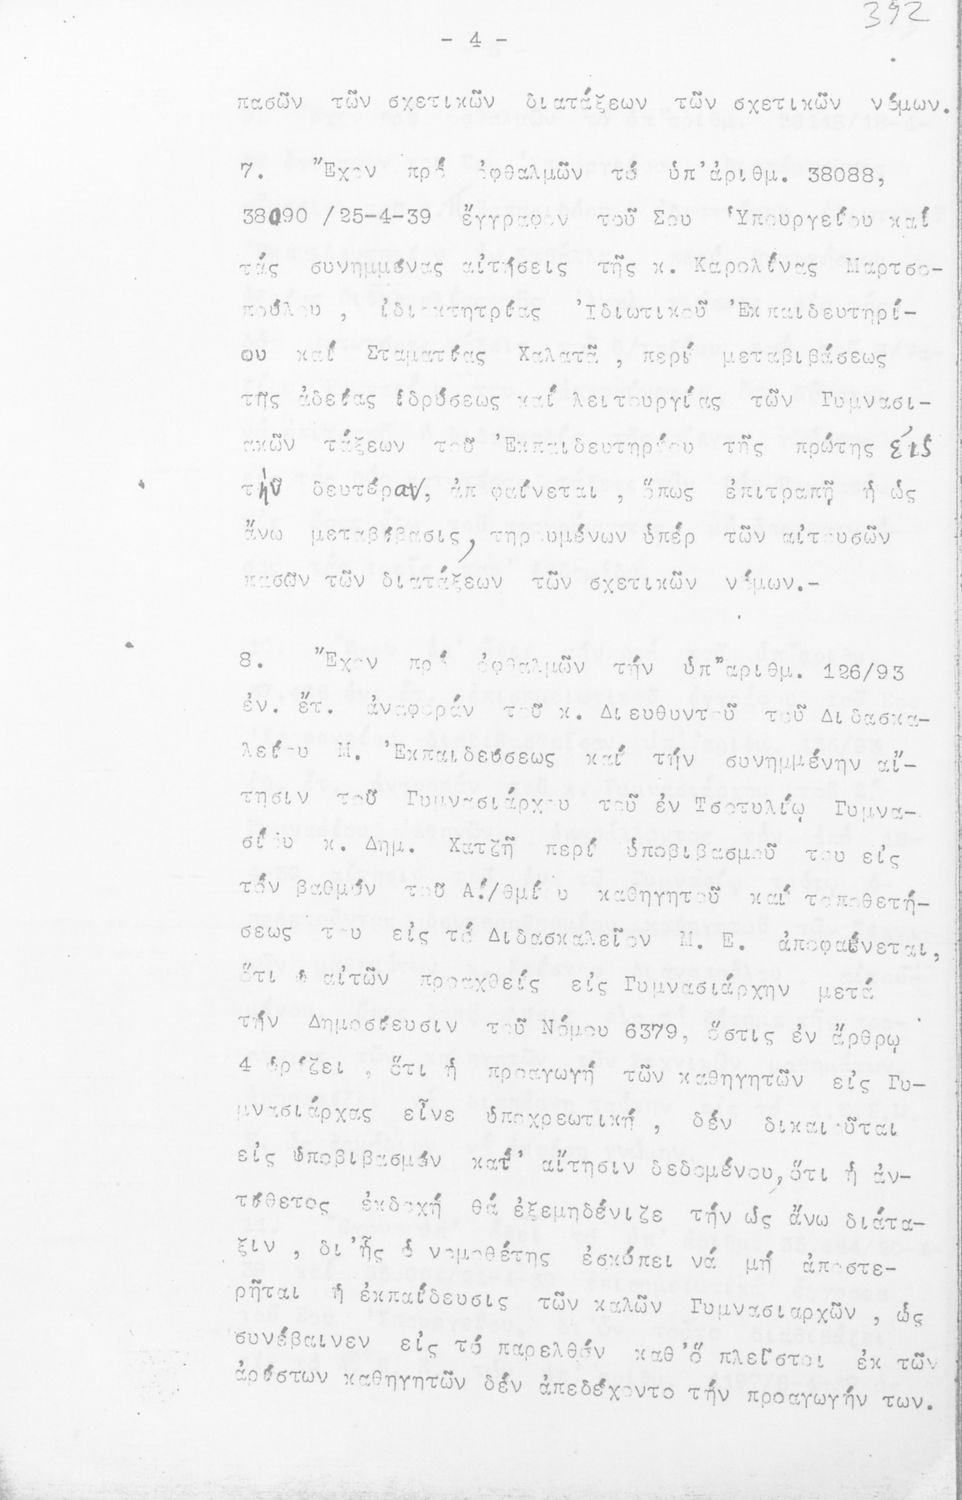 392
- 4 -
πασῶν τῶν σχετικῶν διατάξεων τῶν σχετικῶν νόμων.
7. Ἔχον πρό ὀφθαλμῶν τό ὑπ'ἀριθμ. 38088,
38090 /25-4-39 ἔγγραφον τοῦ Σου Ὑπουργείου καί
τάς συνημμένας αἰτήσεις τῆς κ. Καρολίνας Μαρτσο-
πούλου , ἰδιοκτητρίας Ἰδιωτικοῦ Ἐκπαιδευτηρί-
ου καί Σταματίας Χαλατᾶ , περί μεταβιβάσεως
τῆς ἀδείας ἱδρύσεως καί λειτουργίας τῶν Γυμνασι-
ακῶν τάξεων τοῦ Ἐκπαιδευτηρίου τῆς πρώτης εἰς
τήν δευτέραν, ἀπ φαίνεται , ὅπως ἐπιτραπῇ ἡ ὡς
ἄνω μεταβίβασις, τηρουμένων ὑπέρ τῶν αἰτουσῶν
πασῶν τῶν διατάξεων τῶν σχετικῶν νόμων.-
8. Ἔχον πρό ὀφθαλμῶν τήν ὑπ"αριθμ. 126/93
ἐν. ἔτ. ἀναφοράν τοῦ κ. Διευθυντοῦ τοῦ Διδασκα-
λείου Μ. Ἐκπαιδεύσεως καί τήν συνημμένην αἴ-
τησιν τοῦ Γυμνασιάρχου τοῦ ἐν Τσοτυλίῳ Γυμνα-
σίου κ. Δημ. Χατζῆ περί ὑποβιβασμοῦ του εἰς
τόν βαθμόν τοῦ Α΄/θμίου καθηγητοῦ καί τοποθετή-
σεως του εἰς τό Διδασκαλεῖον Μ. Ε. ἀποφαίνεται,
ὅτι ὁ αἰτῶν προαχθείς εἰς Γυμνασιάρχην μετά
τήν Δημοσίευσιν τοῦ Νόμου 6379, ὅστις ἐν ἄρθρῳ
4 ὁρίζει , ὅτι ἡ προαγωγή τῶν καθηγητῶν εἰς Γυ-
μνασιάρχας εἶνε ὑποχρεωτική , δέν δικαιοῦται
εἰς ὑποβιβασμόν κατ' αἴτησιν δεδομένου, ὅτι ἡ ἀν-
τίθετος ἐκδοχή θά ἐξεμηδένιζε τήν ὡς ἄνω διάτα-
ξιν , δι'ἧς ὁ νομοθέτης ἐσκόπει νά μή ἀποστε-
ρῆται ἡ ἐκπαίδευσις τῶν καλῶν Γυμνασιαρχῶν , ὡς
συνέβαινεν εἰς τό παρελθόν καθ'ὅ πλεῖστοι ἐκ τῶν
ἀρίστων καθηγητῶν δέν ἀπεδέχοντο τήν προαγωγήν των.